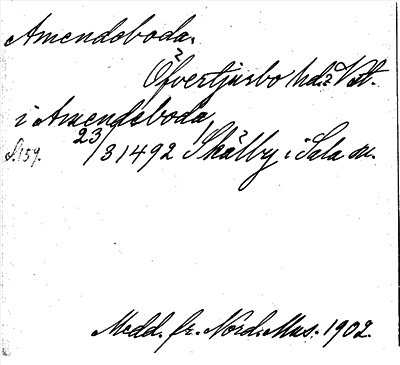 Amendsboda.
Öfvertjurbo hd. Vstm.
i Amendsboda
S. 159. 23/3 1492 Skälby i Sala sn.
Medd. fr. Nord. Mus. 1902.